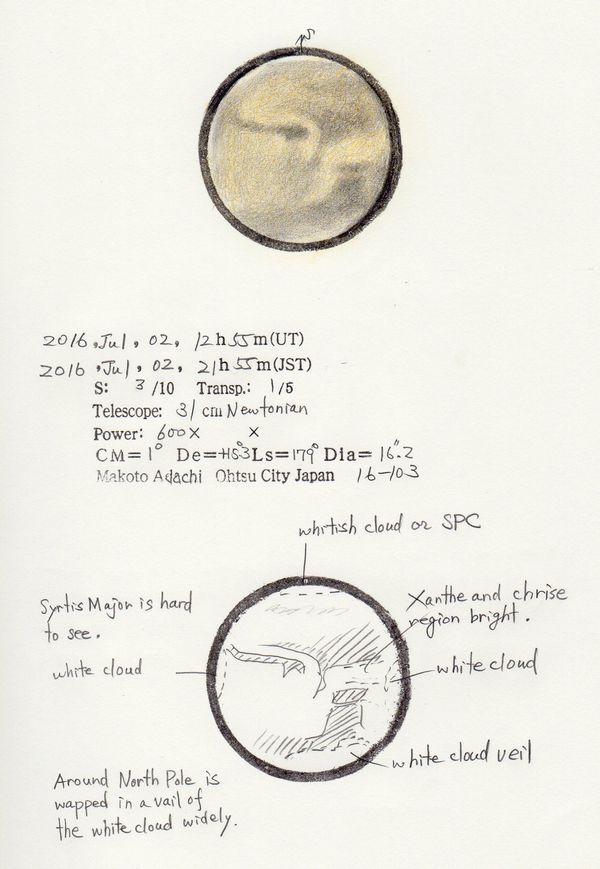 S
2016, Jul, 02, 12h55m(UT)
2016, Jul, 02, 21h55m(JST)
S: 3/10 Transp.: 1/5
Telescope: 31 cm Newtonian
Power: 600X X
CM=1° De=+15.°3 Ls=179° Dia=16."2
Makoto Adachi Ohtsu City Japan 16-103
whitish cloud or SPC
Syrtis Major is hard
to see.
Xanthe and chrise
region bright.
white cloud
white cloud
white cloud veil
Around North Pole is
wapped in a vail of
the white cloud widely.